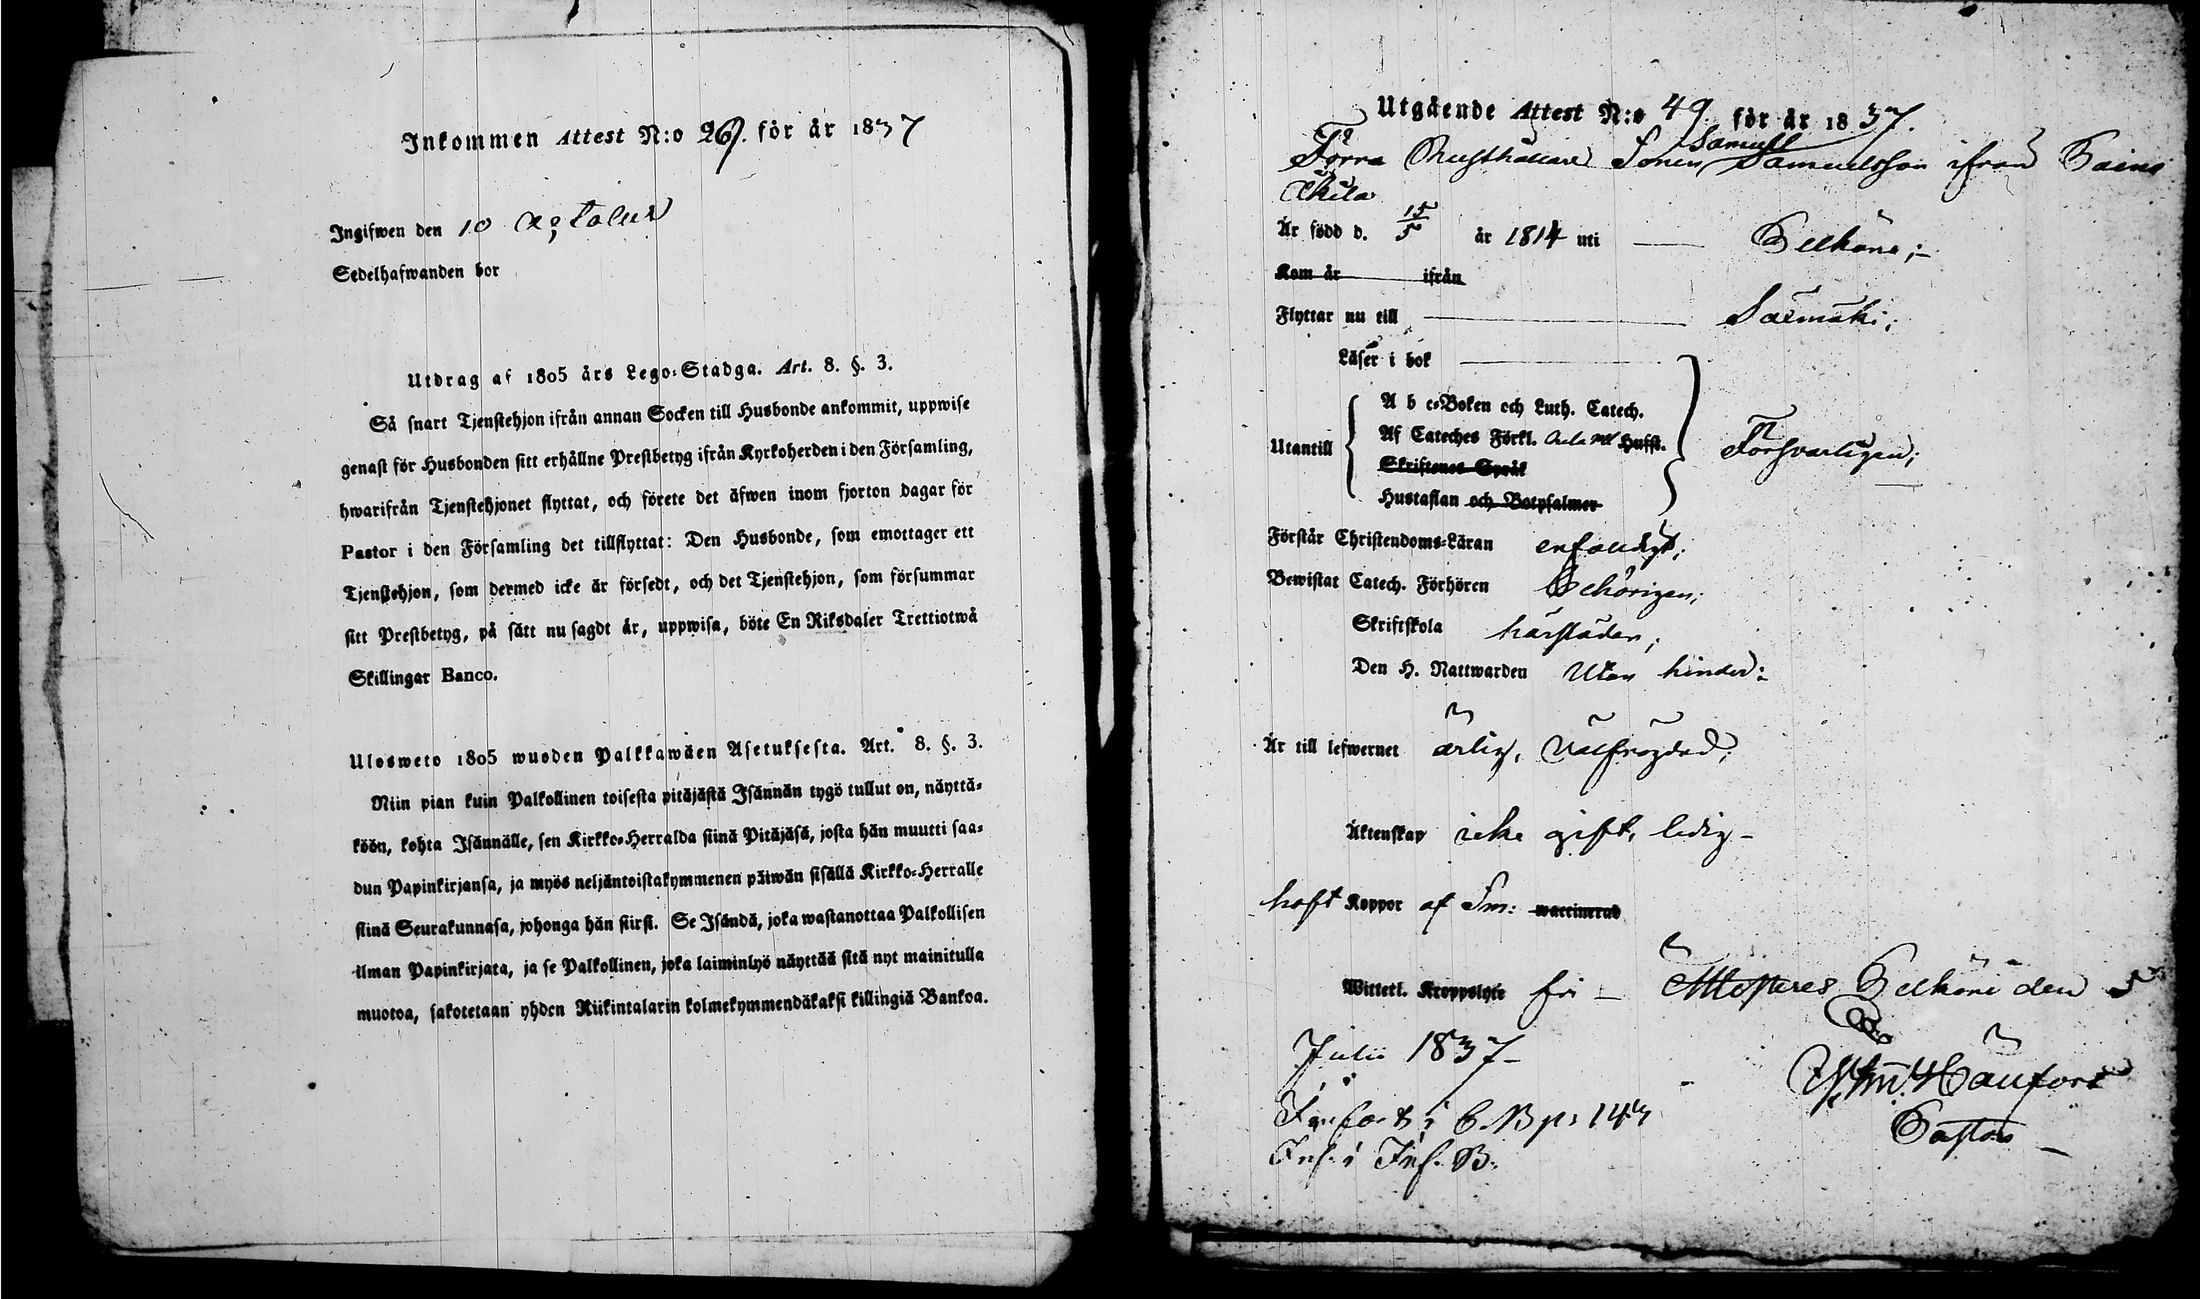 Inkommen Attest N:o 29. för år 1837
Ingifwen den 10 October
Sedelhafwanden bor
Utdrag af 1805 års Lego-Stadga. Art. 8. §. 3.
Så snart Tjenstehjon ifrån annan Socken till Husbonde ankommit, uppwise
genast för Husbonden sitt erhållne Prestbetyg ifrån Kyrkoherden i den Församling,
hwarifrån Tjenstehjonet flyttat, och förete det äfwen inom fjorton dagar för
Pastor i den Församling det tillflyttat: Den Husbonde, som emottager ett
Tjenstehjon, som dermed icke är försedt, och det Tjenstehjon, som försummar
sitt Prestbetyg, på sätt nu sagdt är, uppwisa, böte En Riksdaler Trettiotwå
Skillingar Banco.
Ulosweto 1805 wuoden Palkkawäen Asetuksesta. Art. 8. §. 3.
Niin pian kuin Palkollinen toisesta pitäjästä Isännän tygö tullut on, näyttä-
köön, kohta Isännälle, sen Kirkko-Herralda siinä Pitäjäsä, josta hän muutti saa-
dun Papinkirjansa, ja myös neljäntoistakymmenen päiwän sisällä Kirkko-Herralle
siinä Seurakunnasa, johonga hän siirsi. Se Isändä, joka wastanottaa Palkollisen
ilman Papinkirjata, ja se Palkollinen, joka laiminlyö näyttää sitä nyt mainitulla
muotoa, sakotetaan yhden Riikintalarin kolmekymmendäkaksi killingiä Bankoa.
Utgående Attest N:o 49. för år 1837.
Samuel
Förra Rusthållare Sonen Samuelsson ifrån
Är född d. 15/5 år 1814 uti Pelkäne;
Kom år ifrån
Flyttar nu till Säxmäki;
Läser i bok
A b c-Boken och Luth. Catech.
Utantill Af Cateches Förkl. Hufst. Försvarligen;
Skriftenes Språk
Hustaflan och Botpsalmer
Förstår Christendoms-Läran enfaldigt;
Bewistat Catech. Förhören behörigen;
Skriftskola härstädes;
Den H. Nattwarden utan hinder;
Är till lefwernet ärlig, välfrägdad;
Äktenskap icke gift, ledig
haft Koppor af Sm: waccinerad
Wittetl. Kroppslyte fri Attesteres Pelkäne den 5
Julii 1837
Pastor
Införts i C.B. p. 143
Inf. i Inf. B.